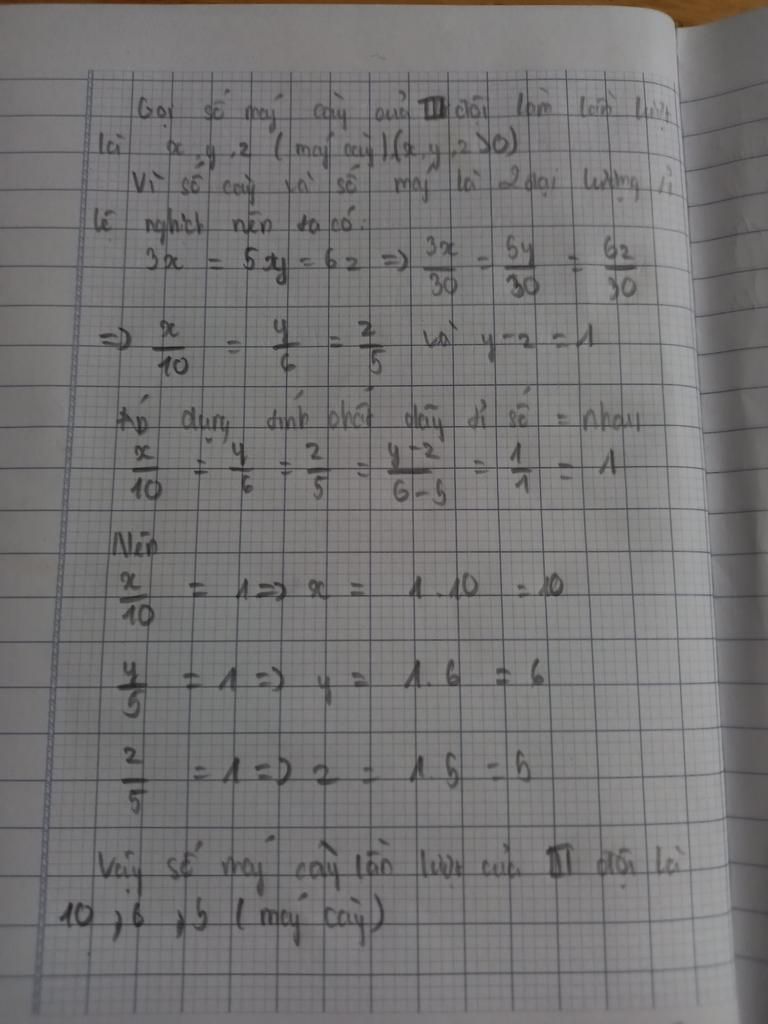 Gọi số máy cày của III đội lần lượt
là x, y, z (máy cày) (x, y, z > 0)
Vì số cày và số máy là 2 đại lượng tỉ
lệ nghịch nên ta có:
3x = 5y = 6z => 3x/30 = 5y/30 = 6z/30
=> x/10 = y/6 = z/5 và y - z = 1
dụng tính chất dãy tỉ số = nhau
x/10 = y/6 = z/5 = y-z/6-5 = 1/1 = 1
Nên
x/10 = 1 => x = 1.10 = 10
y/5 = 1 => y = 1.6 = 6
z/5 = 1 => z = 1.5 = 5
Vậy số máy cày lần lượt của III đội là
10, 6, 5 (máy cày)